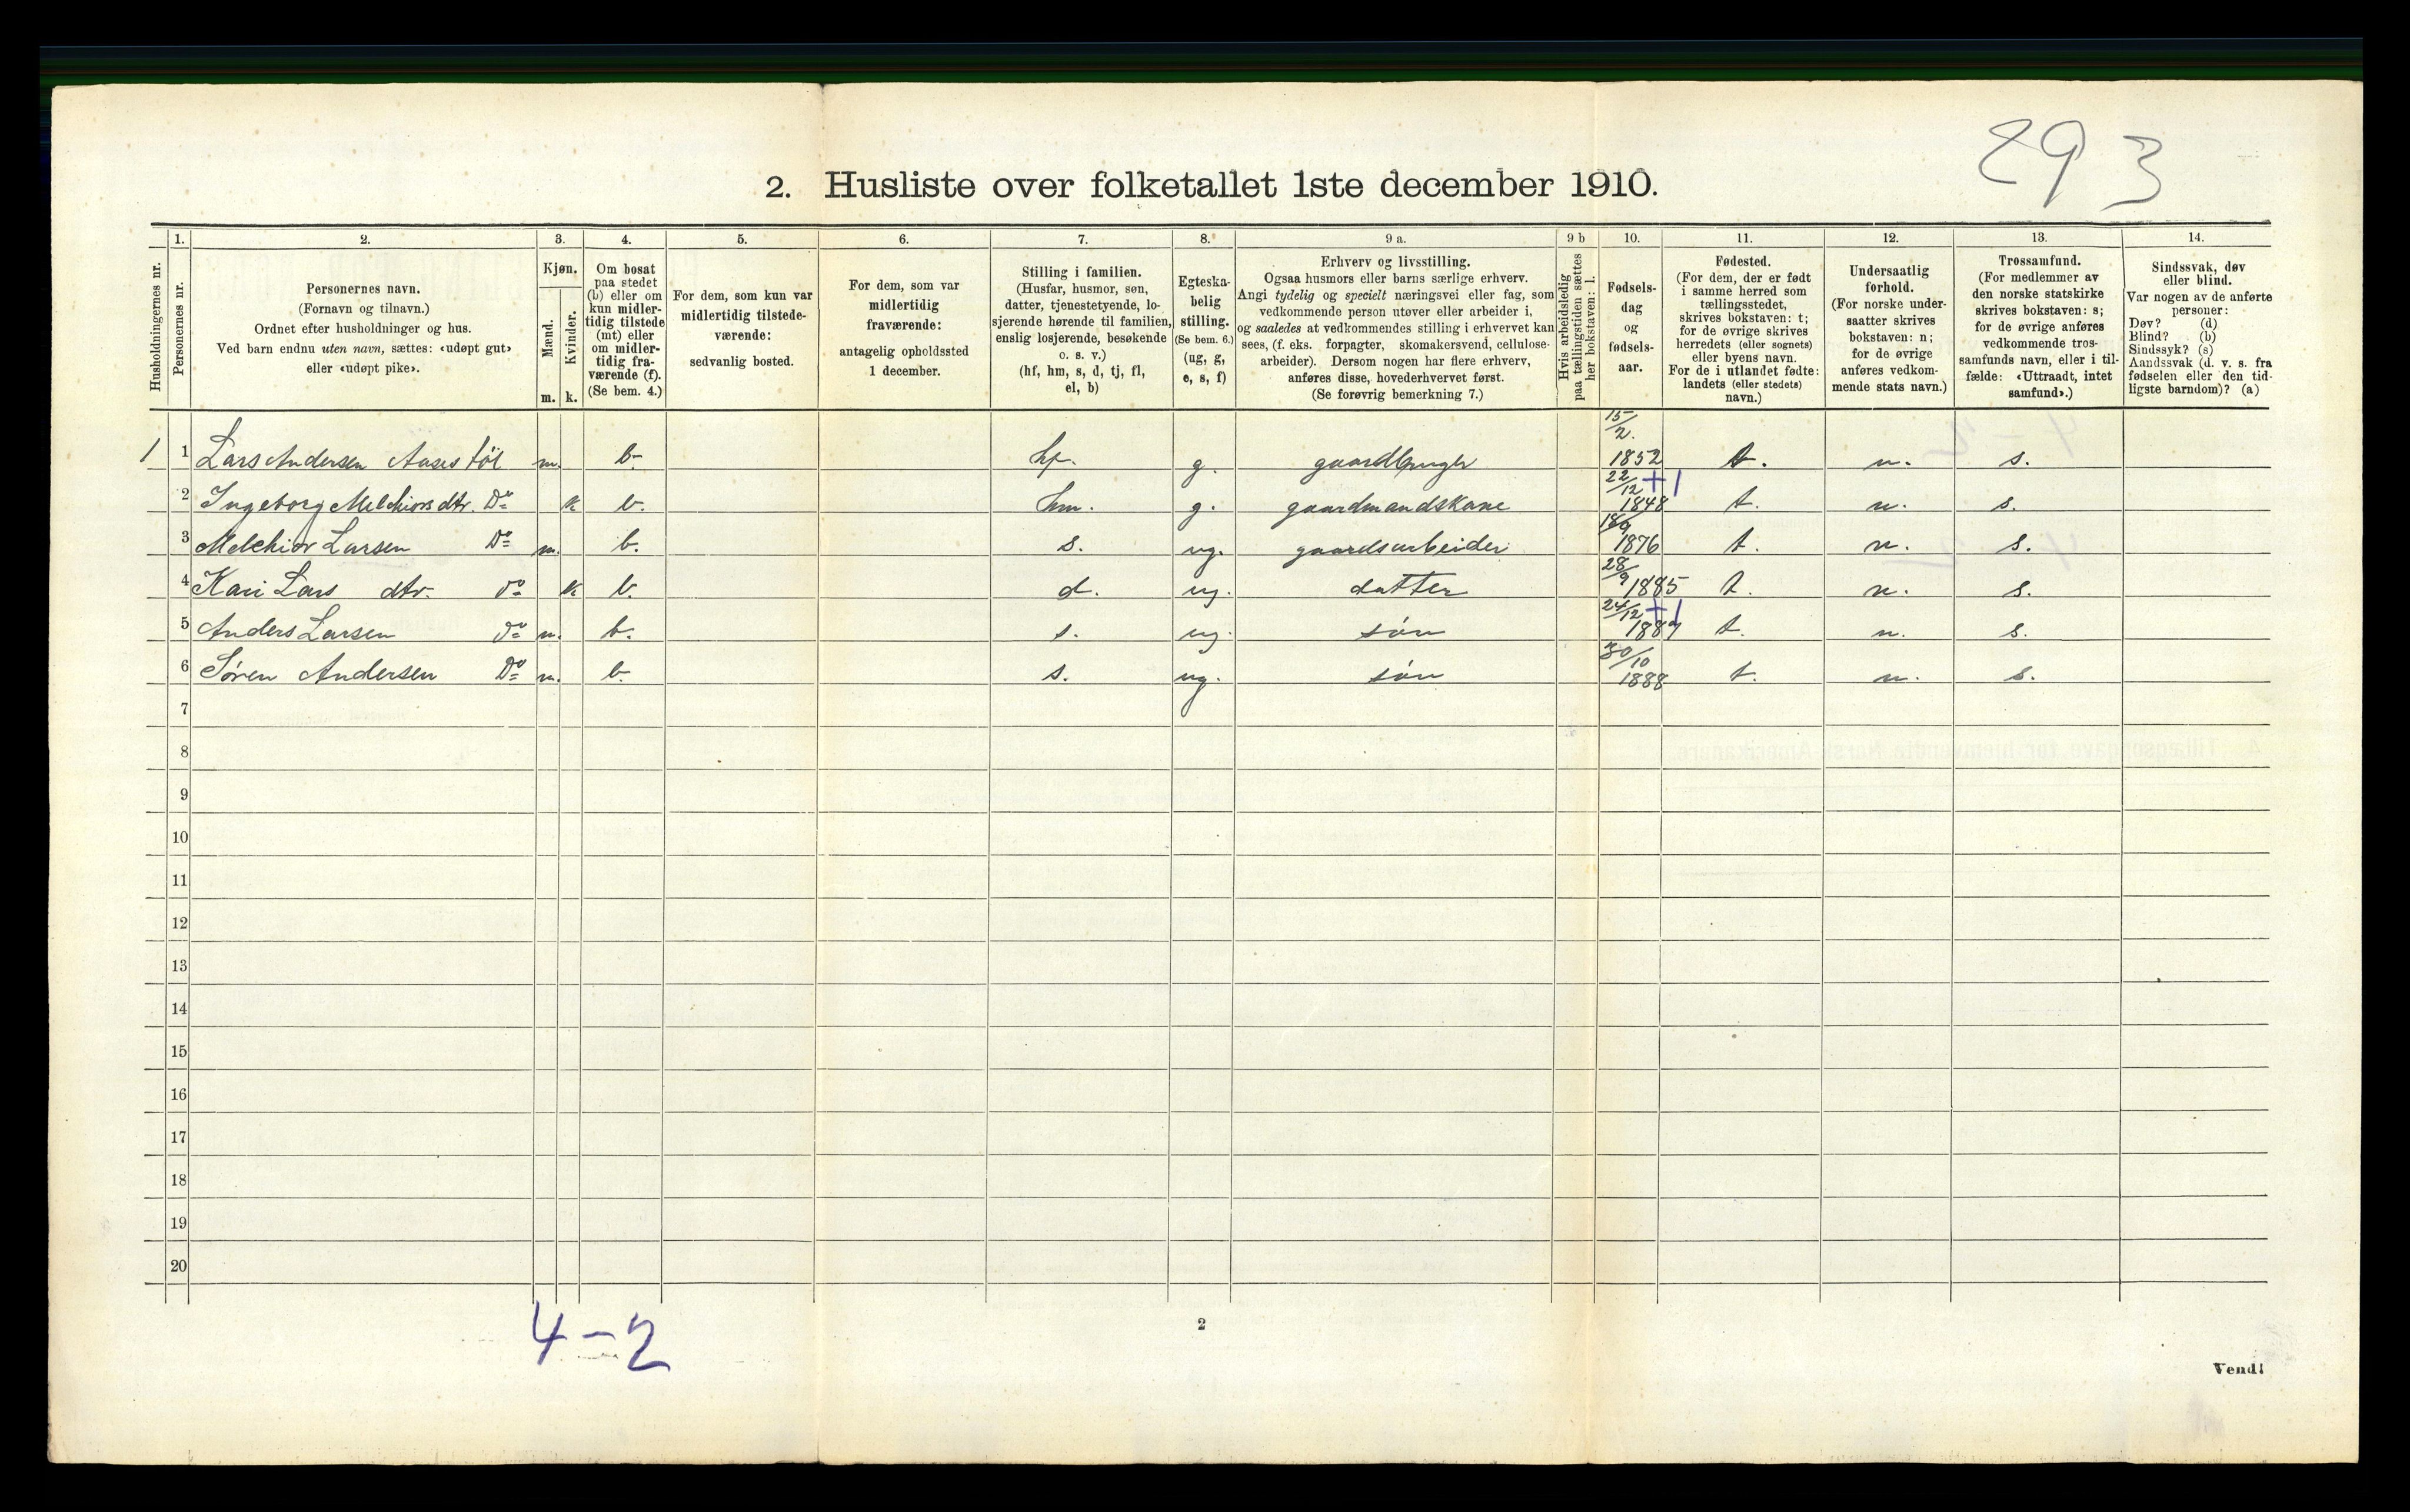 293
2. Husliste over folketallet 1ste december 1910.
Husholdningernes nr.
1.
Personernes nr.
2.
Personernes navn.
(Fornavn og tilnavn.)
Ordnet efter husholdninger og hus.
Ved barn endnu uten navn, sættes: «udøpt gut»
eller «udøpt pike».
3.
Kjøn.
Mænd.
Kvinder.
m. k.
4.
Om bosat
paa stedet
(b) eller om
kun midler-
tidig tilstede
(mt) eller
om midler-
tidig fra-
værende (f).
(Se bem. 4.)
5.
For dem, som kun var
midlertidig tilstede-
værende:
sedvanlig bosted.
6.
For dem, som var
midlertidig
fraværende:
antagelig opholdssted
1 december.
7.
Stilling i familien.
(Husfar, husmor, søn,
datter, tjenestetyende, lo-
sjerende hørende til familien,
enslig losjerende, besøkende
o. s. v.)
(hf, hm, s, d, tj, fl,
el, b)
8.
Egteska-
belig
stilling.
(Se bem. 6.)
(ug, g,
e, s, f)
9 a.
Erhverv og livsstilling.
Ogsaa husmors eller barns særlige erhverv.
Angi tydelig og specielt næringsvei eller fag, som
vedkommende person utøver eller arbeider i,
og saaledes at vedkommendes stilling i erhvervet kan
sees, (f. eks. forpagter, skomakersvend, cellulose-
arbeider). Dersom nogen har flere erhverv,
anføres disse, hovederhvervet først.
(Se forøvrig bemerkning 7.)
9 b
Hvis arbeidsledig
paa tællingstiden sættes
her bokstaven: l.
10.
Fødsels-
dag
og
fødsels-
aar.
11.
Fødested.
(For dem, der er født
i samme herred som
tællingsstedet,
skrives bokstaven: t;
for de øvrige skrives
herredets (eller sognets)
eller byens navn.
For de i utlandet fødte:
landets (eller stedets)
navn.)
12.
Undersaatlig
forhold.
(For norske under-
saatter skrives
bokstaven: n;
for de øvrige
anføres vedkom-
mende stats navn.)
13.
Trossamfund.
(For medlemmer av
den norske statskirke
skrives bokstaven: s;
for de øvrige anføres
vedkommende tros-
samfunds navn, eller i til-
fælde: «Uttraadt, intet
samfund».)
14.
Sindssvak, døv
eller blind.
Var nogen av de anførte
personer:
Døv? (d)
Blind? (b)
Sindssyk? (s)
Aandssvak (d. v. s. fra
fødselen eller den tid-
ligste barndom)? (a)
1 1 Lars Andersen Aasestöl m. b. hf. g. 15/2. 1852 t. n. s.
2 Ingeborg Melchiorsdtr. Do k b. hm. g. gaardmandskone 22/12 1848 +1 t. n. s.
3 Melchior Larsen Do m. b. s. ug. gaardsarbeider 18/9 1876 t. n. s.
4 Kari Lars dtr. do k b. d. ug. datter 28/9 1885 t. n. s.
5 Anders Larsen do m. b. s. ug. søn 24/12 1887 +1 t. n. s.
6 Søren Andersen Do m. b. s. ug. søn 30/10 1888 t. n. s.
7
8
9
10
11
12
13
14
15
16
17
18
19
20
4-2
2
Vend!